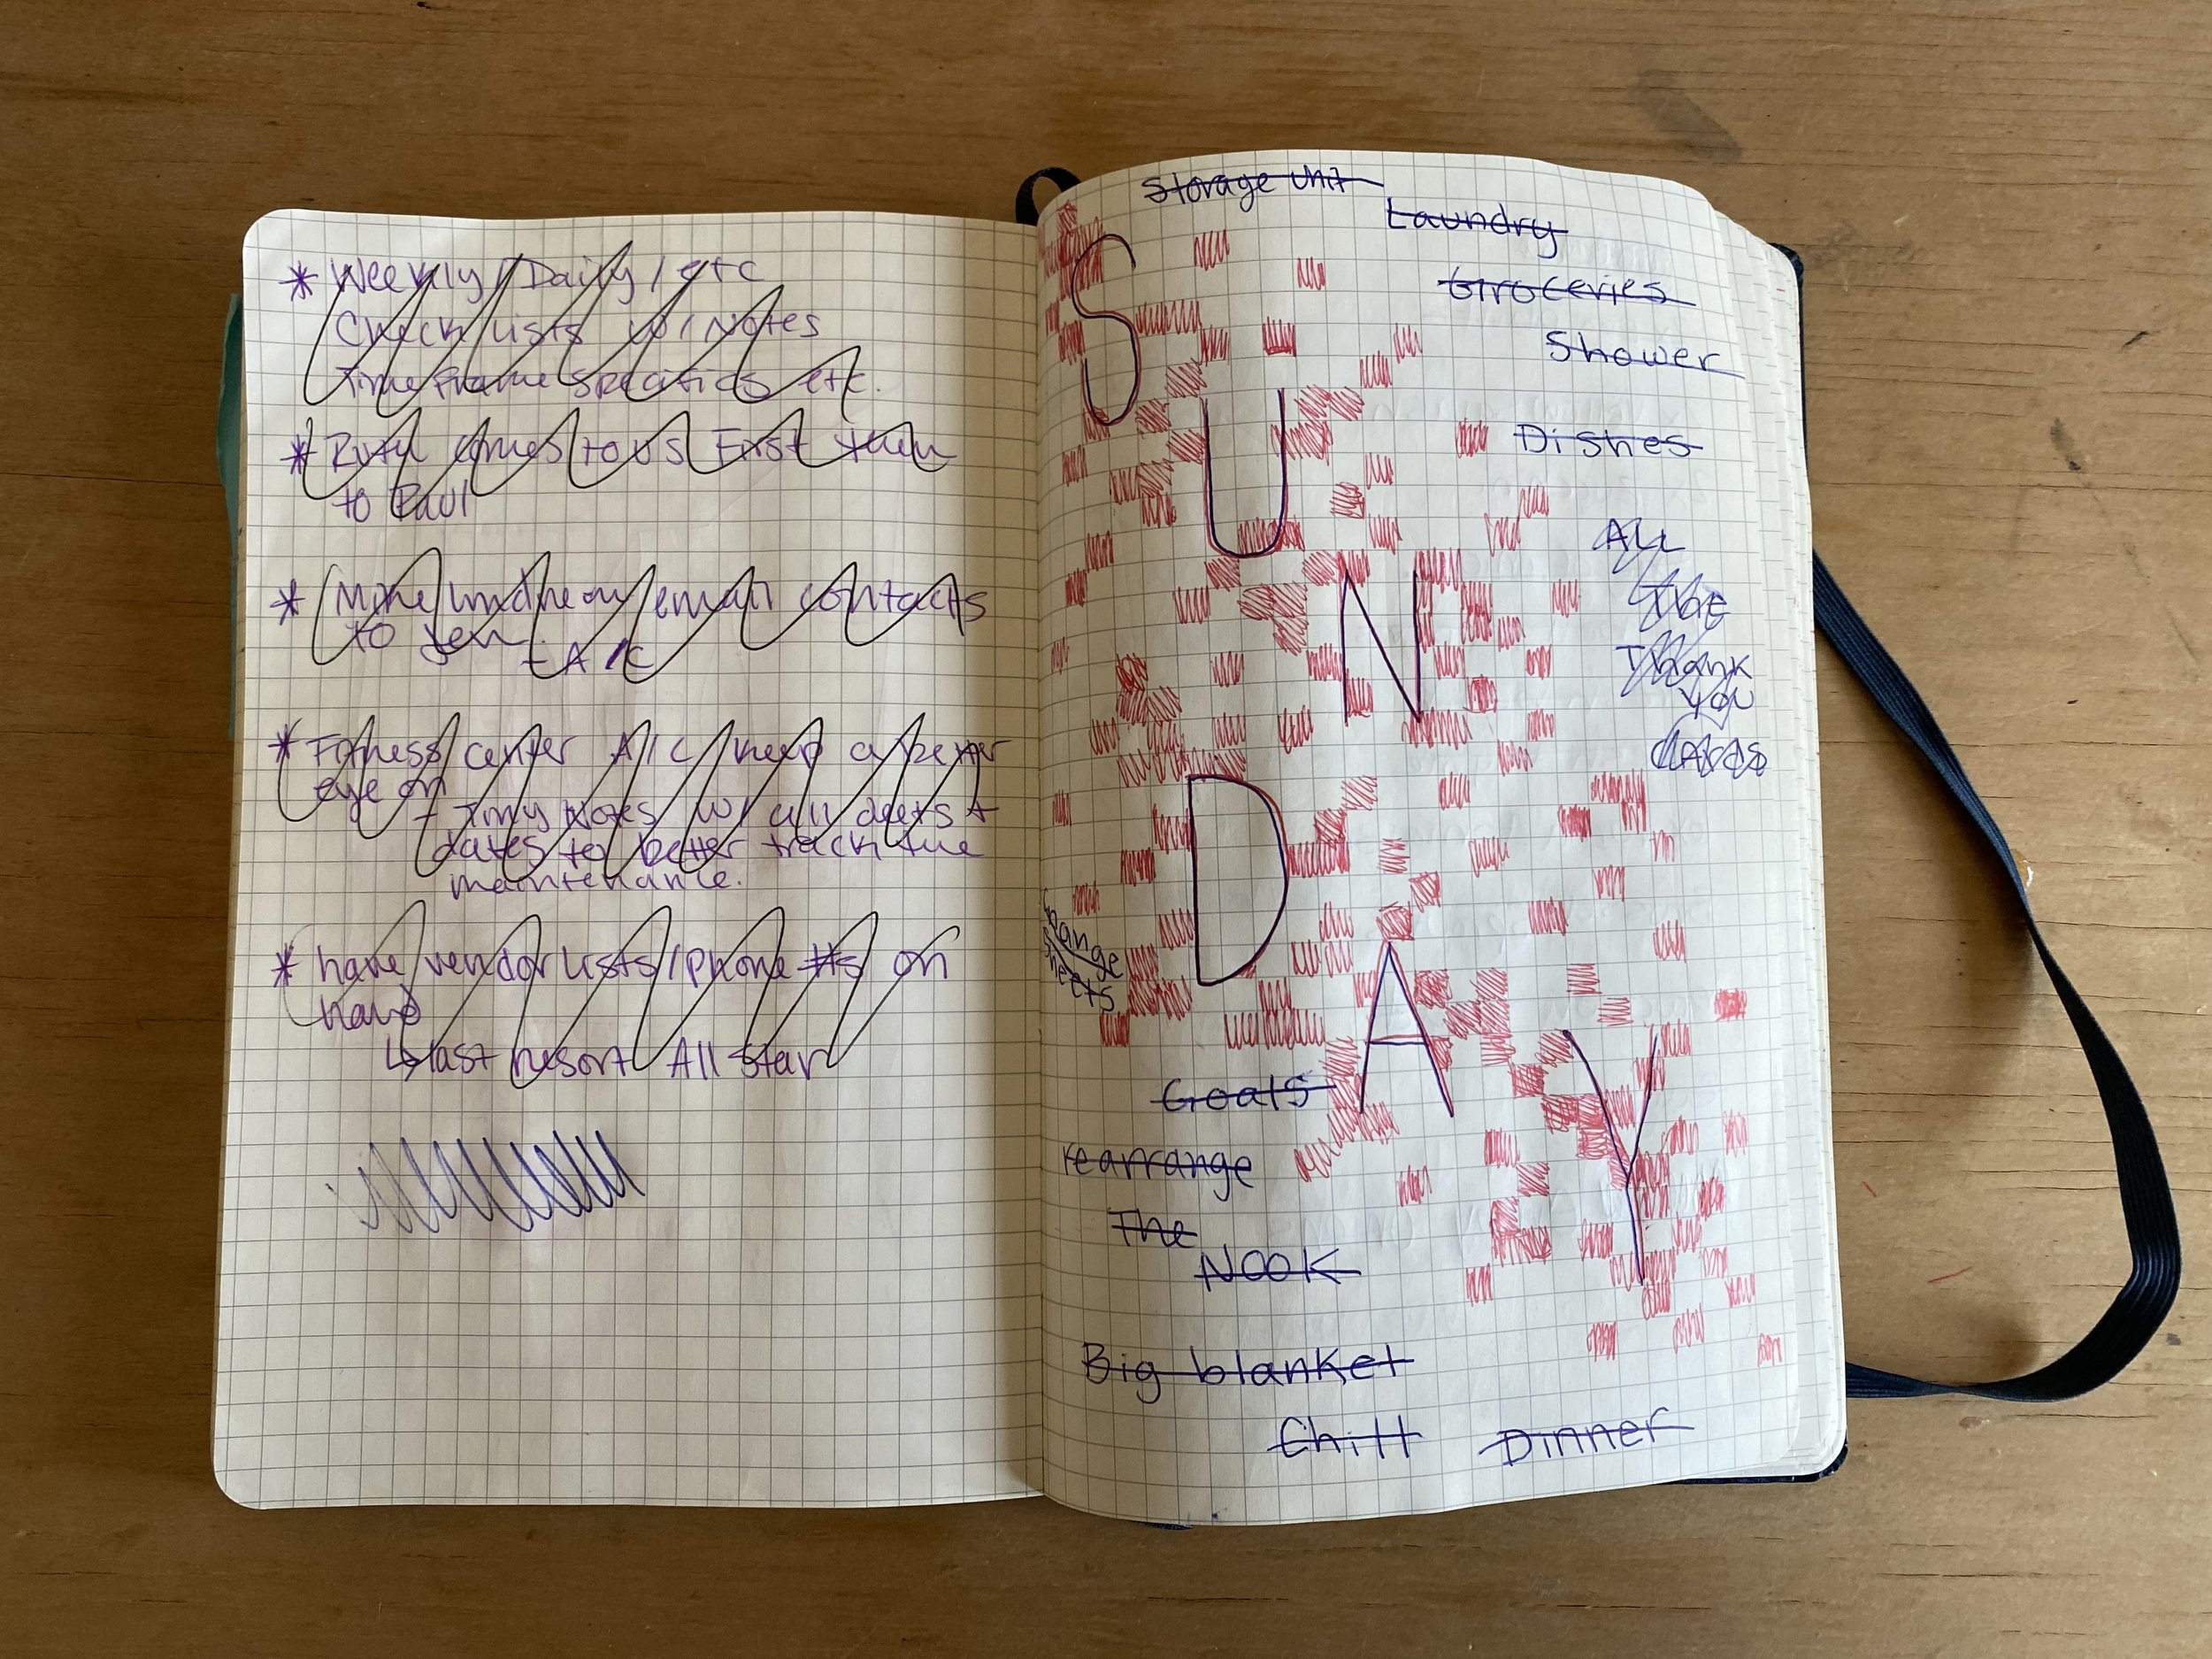 * Weekly / Daily / etc
Check lists w/ Notes
Time frame specifics etc.
* Ruth comes to us First then
to Paul
* Mike / email contacts
to Jen
- A/C
* Fitness center A/C / keep a better
eye on
- Tiny Notes w/ all deets +
dates to better track the
maintenance.
* have vendor lists / phone #s on
hand
↳ last resort All Star
Storage Unit
Laundry
Groceries
Shower
Dishes
ALL
The
Thank
you
CARDS
SUNDAY
Change
Sheets
Goals
rearrange
The
NOOK
Big blanket
Chill Dinner